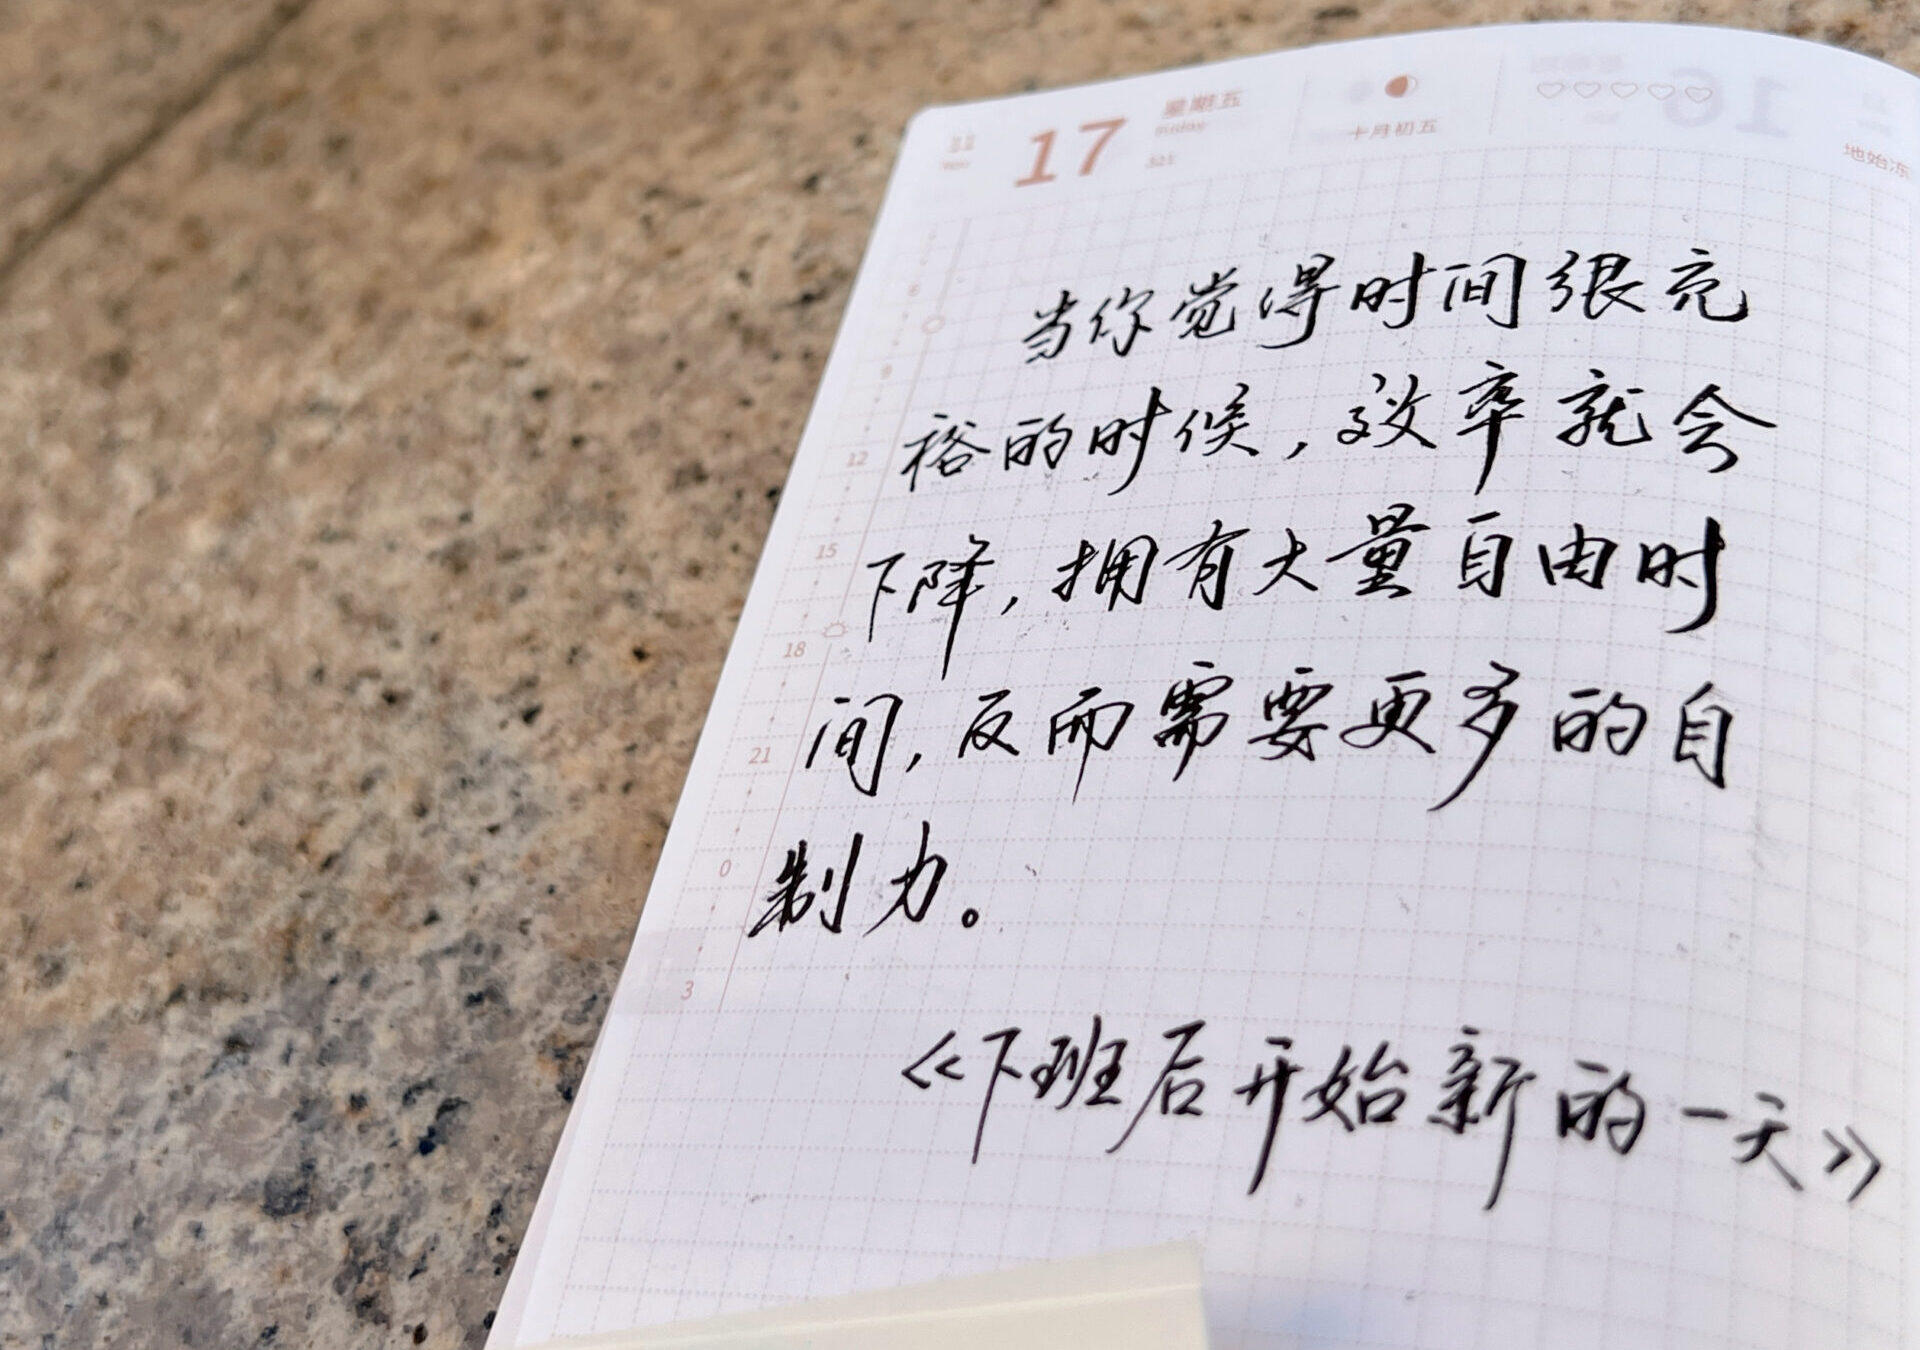 11
17
星期五
friday
321
十月初五
16
地始冻
当你觉得时间很充
裕的时候，效率就会
下降，拥有大量自由时
间，反而需要更多的自
制力。
《下班后开始新的一天》
6
9
12
15
18
21
0
3